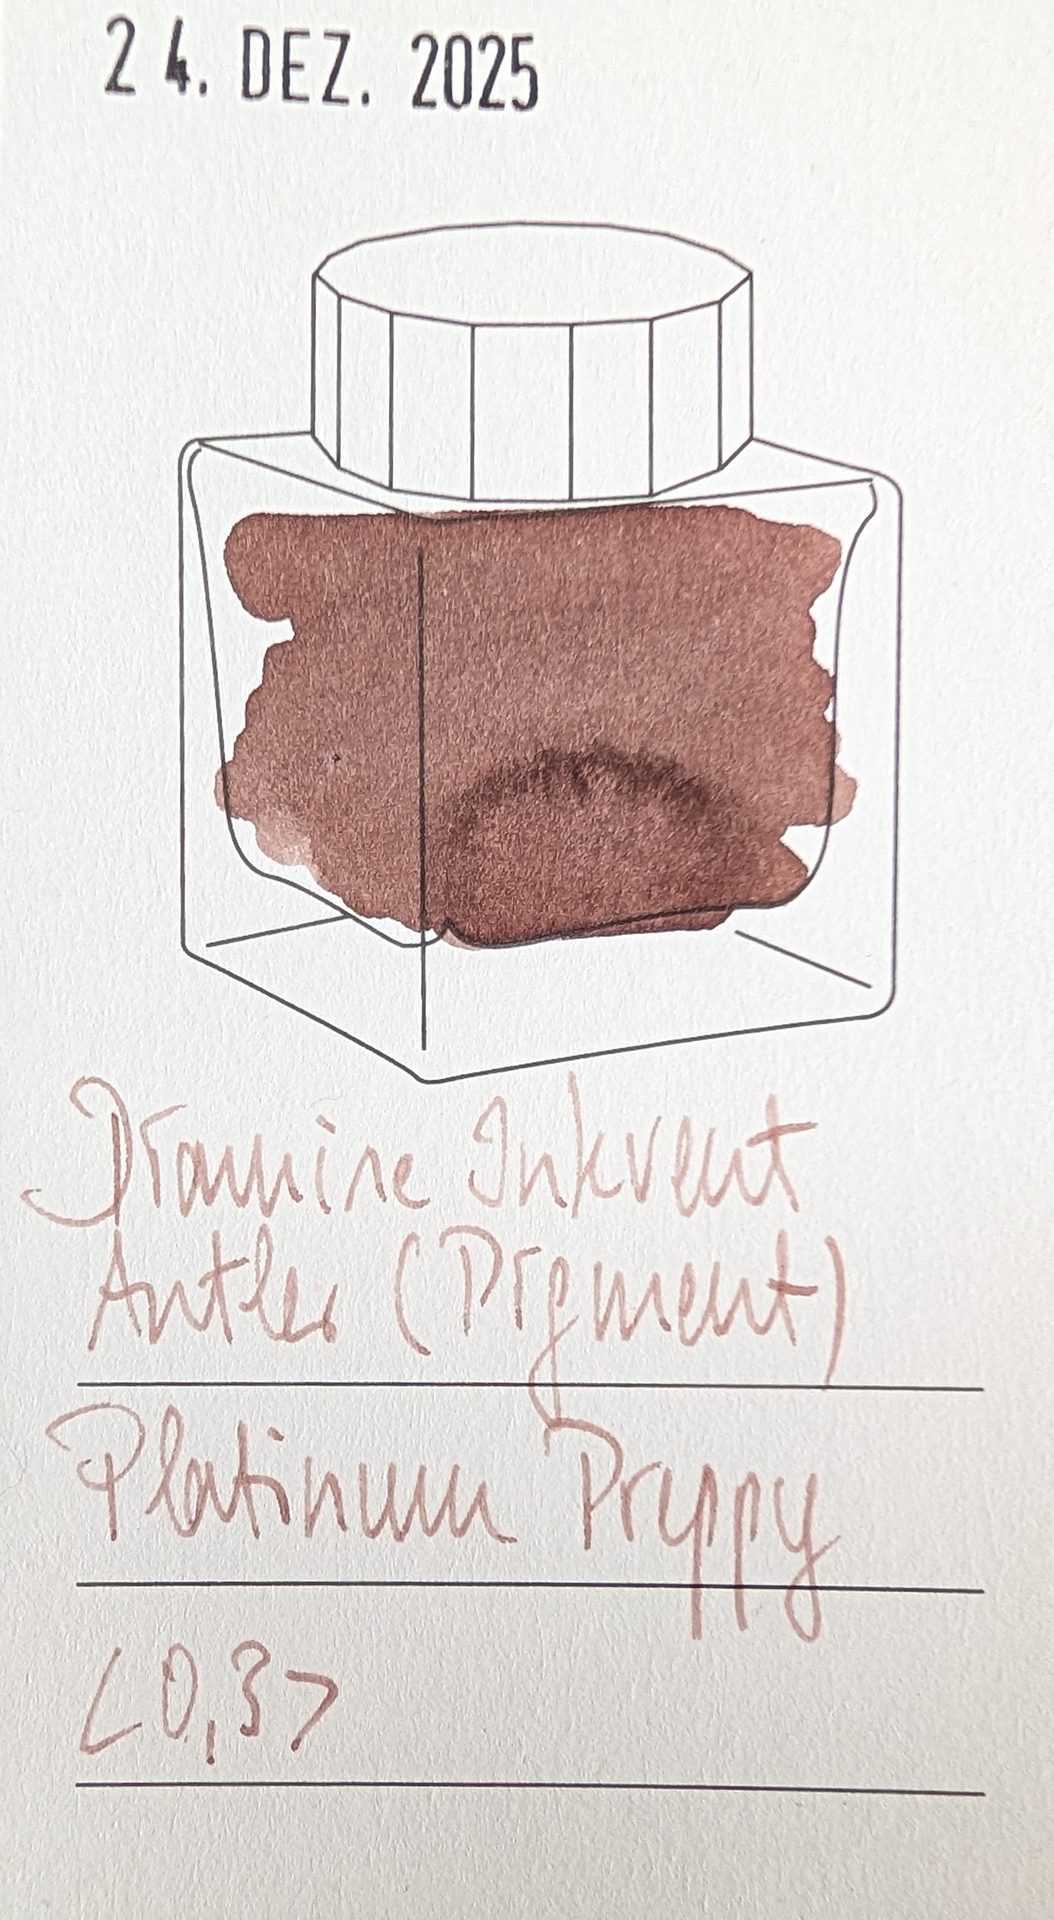 24. DEZ. 2025
Diamine Inkvent
Antler (Pigment)
Platinum Preppy
<0,3>